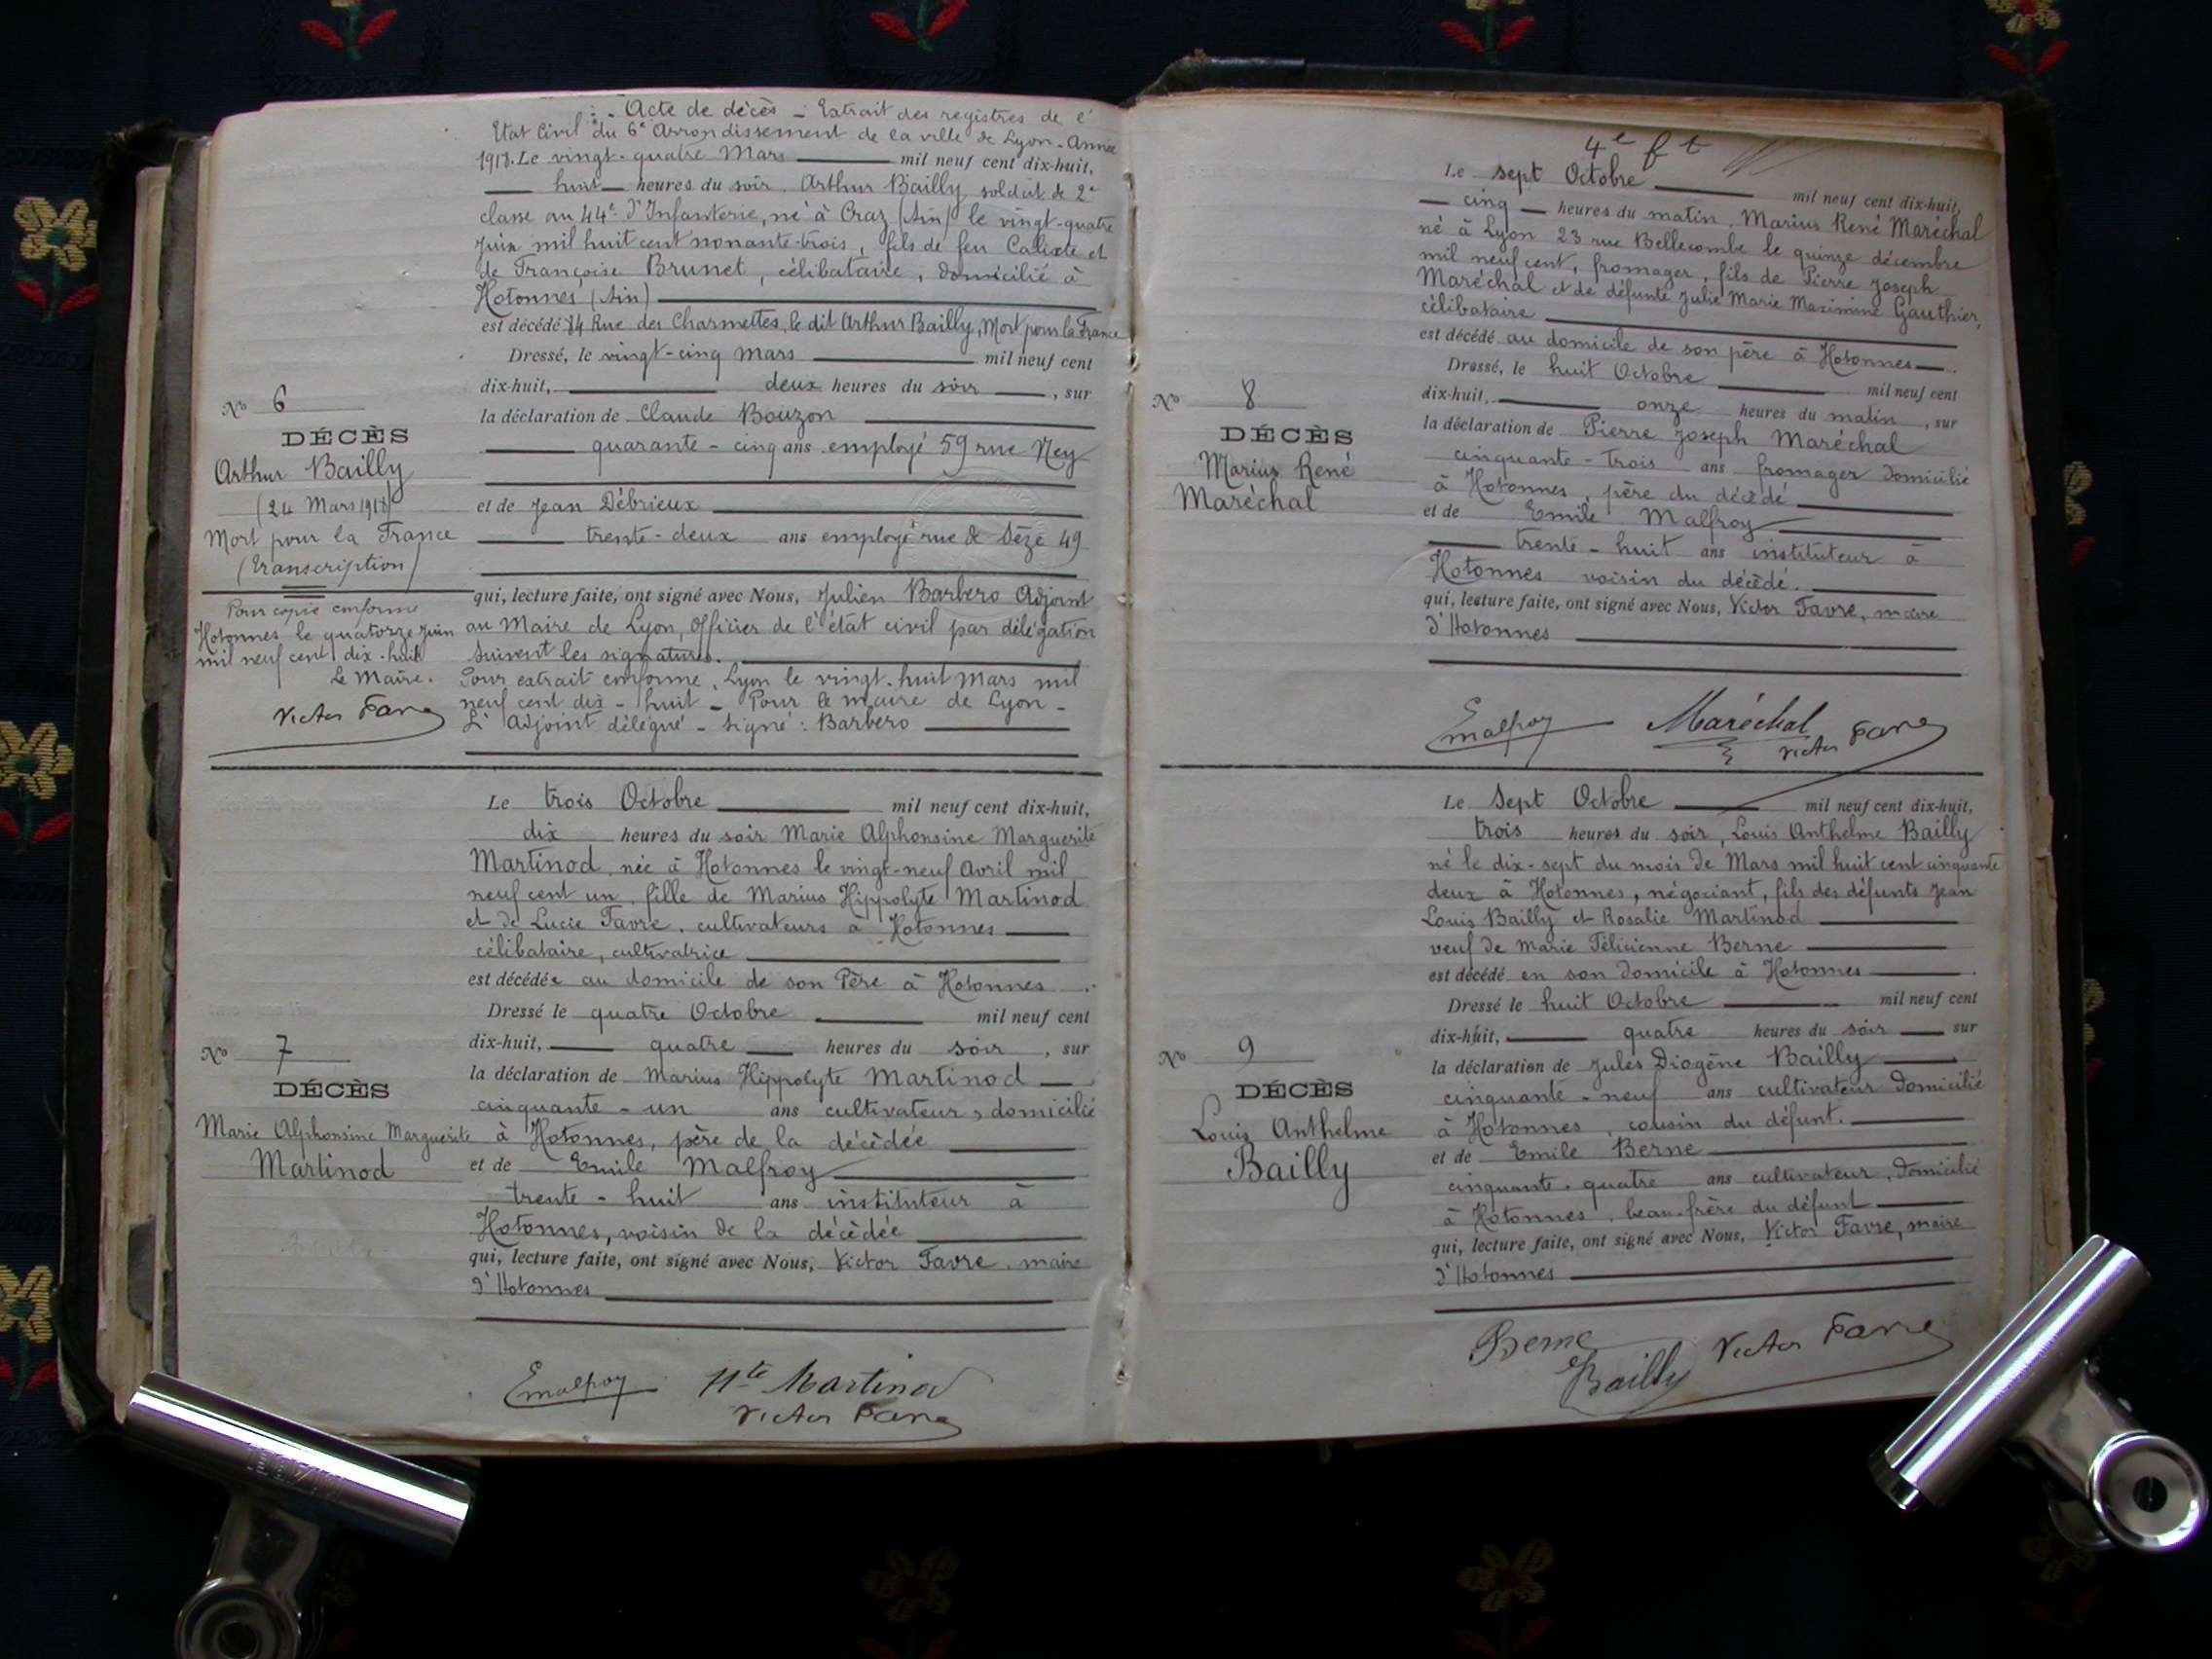 Acte de décès - Extrait des registres de l'
Etat Civil du 6e Arrondissement de la ville de Lyon - Année
1918. Le vingt-quatre Mars mil neuf cent dix-huit,
huit heures du soir, Arthur Bailly, soldat de 2e
classe au 44e d'Infanterie, né à Craz (Ain) le vingt-quatre
Juin mil huit cent nonante-trois, fils de feu Calixte et
de Françoise Brunet, célibataire, domicilié à
Hotonnes (Ain)
est décédé 84 Rue des Charmettes, le dit Arthur Bailly, Mort pour la France
Dressé, le vingt-cinq Mars mil neuf cent
dix-huit, deux heures du soir, sur
la déclaration de Claude Bouzon
quarante-cinq ans employé 59 rue Ney
et de Jean Débrieux
trente-deux ans employé rue de Sèze 49
qui, lecture faite, ont signé avec Nous, Julien Barbero Adjoint
au Maire de Lyon, Officier de l'état civil par délégation
Suivent les signatures.
Pour extrait conforme, Lyon le vingt-huit Mars mil
neuf cent dix-huit - Pour le maire de Lyon -
L'Adjoint délégué - Signé : Barbero
No 6
DÉCÈS
Arthur Bailly
(24 Mars 1918)
Mort pour la France
(Transcription)
Pour copie conforme
Hotonnes le quatorze Juin
mil neuf cent dix-huit
Le Maire.
Victor Favre
Le trois Octobre mil neuf cent dix-huit,
dix heures du soir Marie Alphonsine Marguerite
Martinod, née à Hotonnes le vingt-neuf Avril mil
neuf cent un, fille de Marius Hippolyte Martinod
et de Lucie Favre, cultivateurs à Hotonnes
célibataire, cultivatrice
est décédée au domicile de son Père à Hotonnes.
Dressé le quatre Octobre mil neuf cent
dix-huit, quatre heures du soir, sur
la déclaration de Marius Hippolyte Martinod
cinquante-un ans cultivateur, domicilié
à Hotonnes, père de la décèdée
et de Emile Malfroy
trente-huit ans instituteur à
Hotonnes, voisin de la décèdée
qui, lecture faite, ont signé avec Nous, Victor Favre, maire
d'Hotonnes
No 7
DÉCÈS
Marie Alphonsine Marguerite
Martinod
Emalfroy Hte Martinod
Victor Favre
4e ft
Le sept Octobre mil neuf cent dix-huit,
cinq heures du matin, Marius René Maréchal
né à Lyon 23 rue Bellecombe le quinze décembre
mil neuf cent, fromager, fils de Pierre Joseph
Maréchal et de défunte Julie Marie Maximine Gauthier,
célibataire
est décédé au domicile de son père à Hotonnes.
Dressé, le huit Octobre mil neuf cent
dix-huit, onze heures du matin, sur
la déclaration de Pierre Joseph Maréchal
cinquante-trois ans fromager domicilié
à Hotonnes, père du décèdé
et de Emile Malfroy
trente-huit ans instituteur à
Hotonnes voisin du décèdé.
qui, lecture faite, ont signé avec Nous, Victor Favre, maire
d'Hotonnes
No 8
DÉCÈS
Marius René
Maréchal
Emalfroy Maréchal
Victor Favre
Le Sept Octobre mil neuf cent dix-huit,
trois heures du soir, Louis Anthelme Bailly
né le dix-sept du mois de Mars mil huit cent cinquante
deux à Hotonnes, négociant, fils des défunts Jean
Louis Bailly et Rosalie Martinod
veuf de Marie Félicienne Berne
est décédé en son domicile à Hotonnes.
Dressé le huit Octobre mil neuf cent
dix-huit, quatre heures du soir sur
la déclaration de Jules Diogène Bailly
cinquante-neuf ans cultivateur domicilié
à Hotonnes, cousin du défunt.
et de Emile Berne
cinquante-quatre ans cultivateur, domicilié
à Hotonnes, beau-frère du défunt
qui, lecture faite, ont signé avec Nous, Victor Favre, maire
d'Hotonnes
No 9
DÉCÈS
Louis Anthelme
Bailly
Berne
Bailly Victor Favre